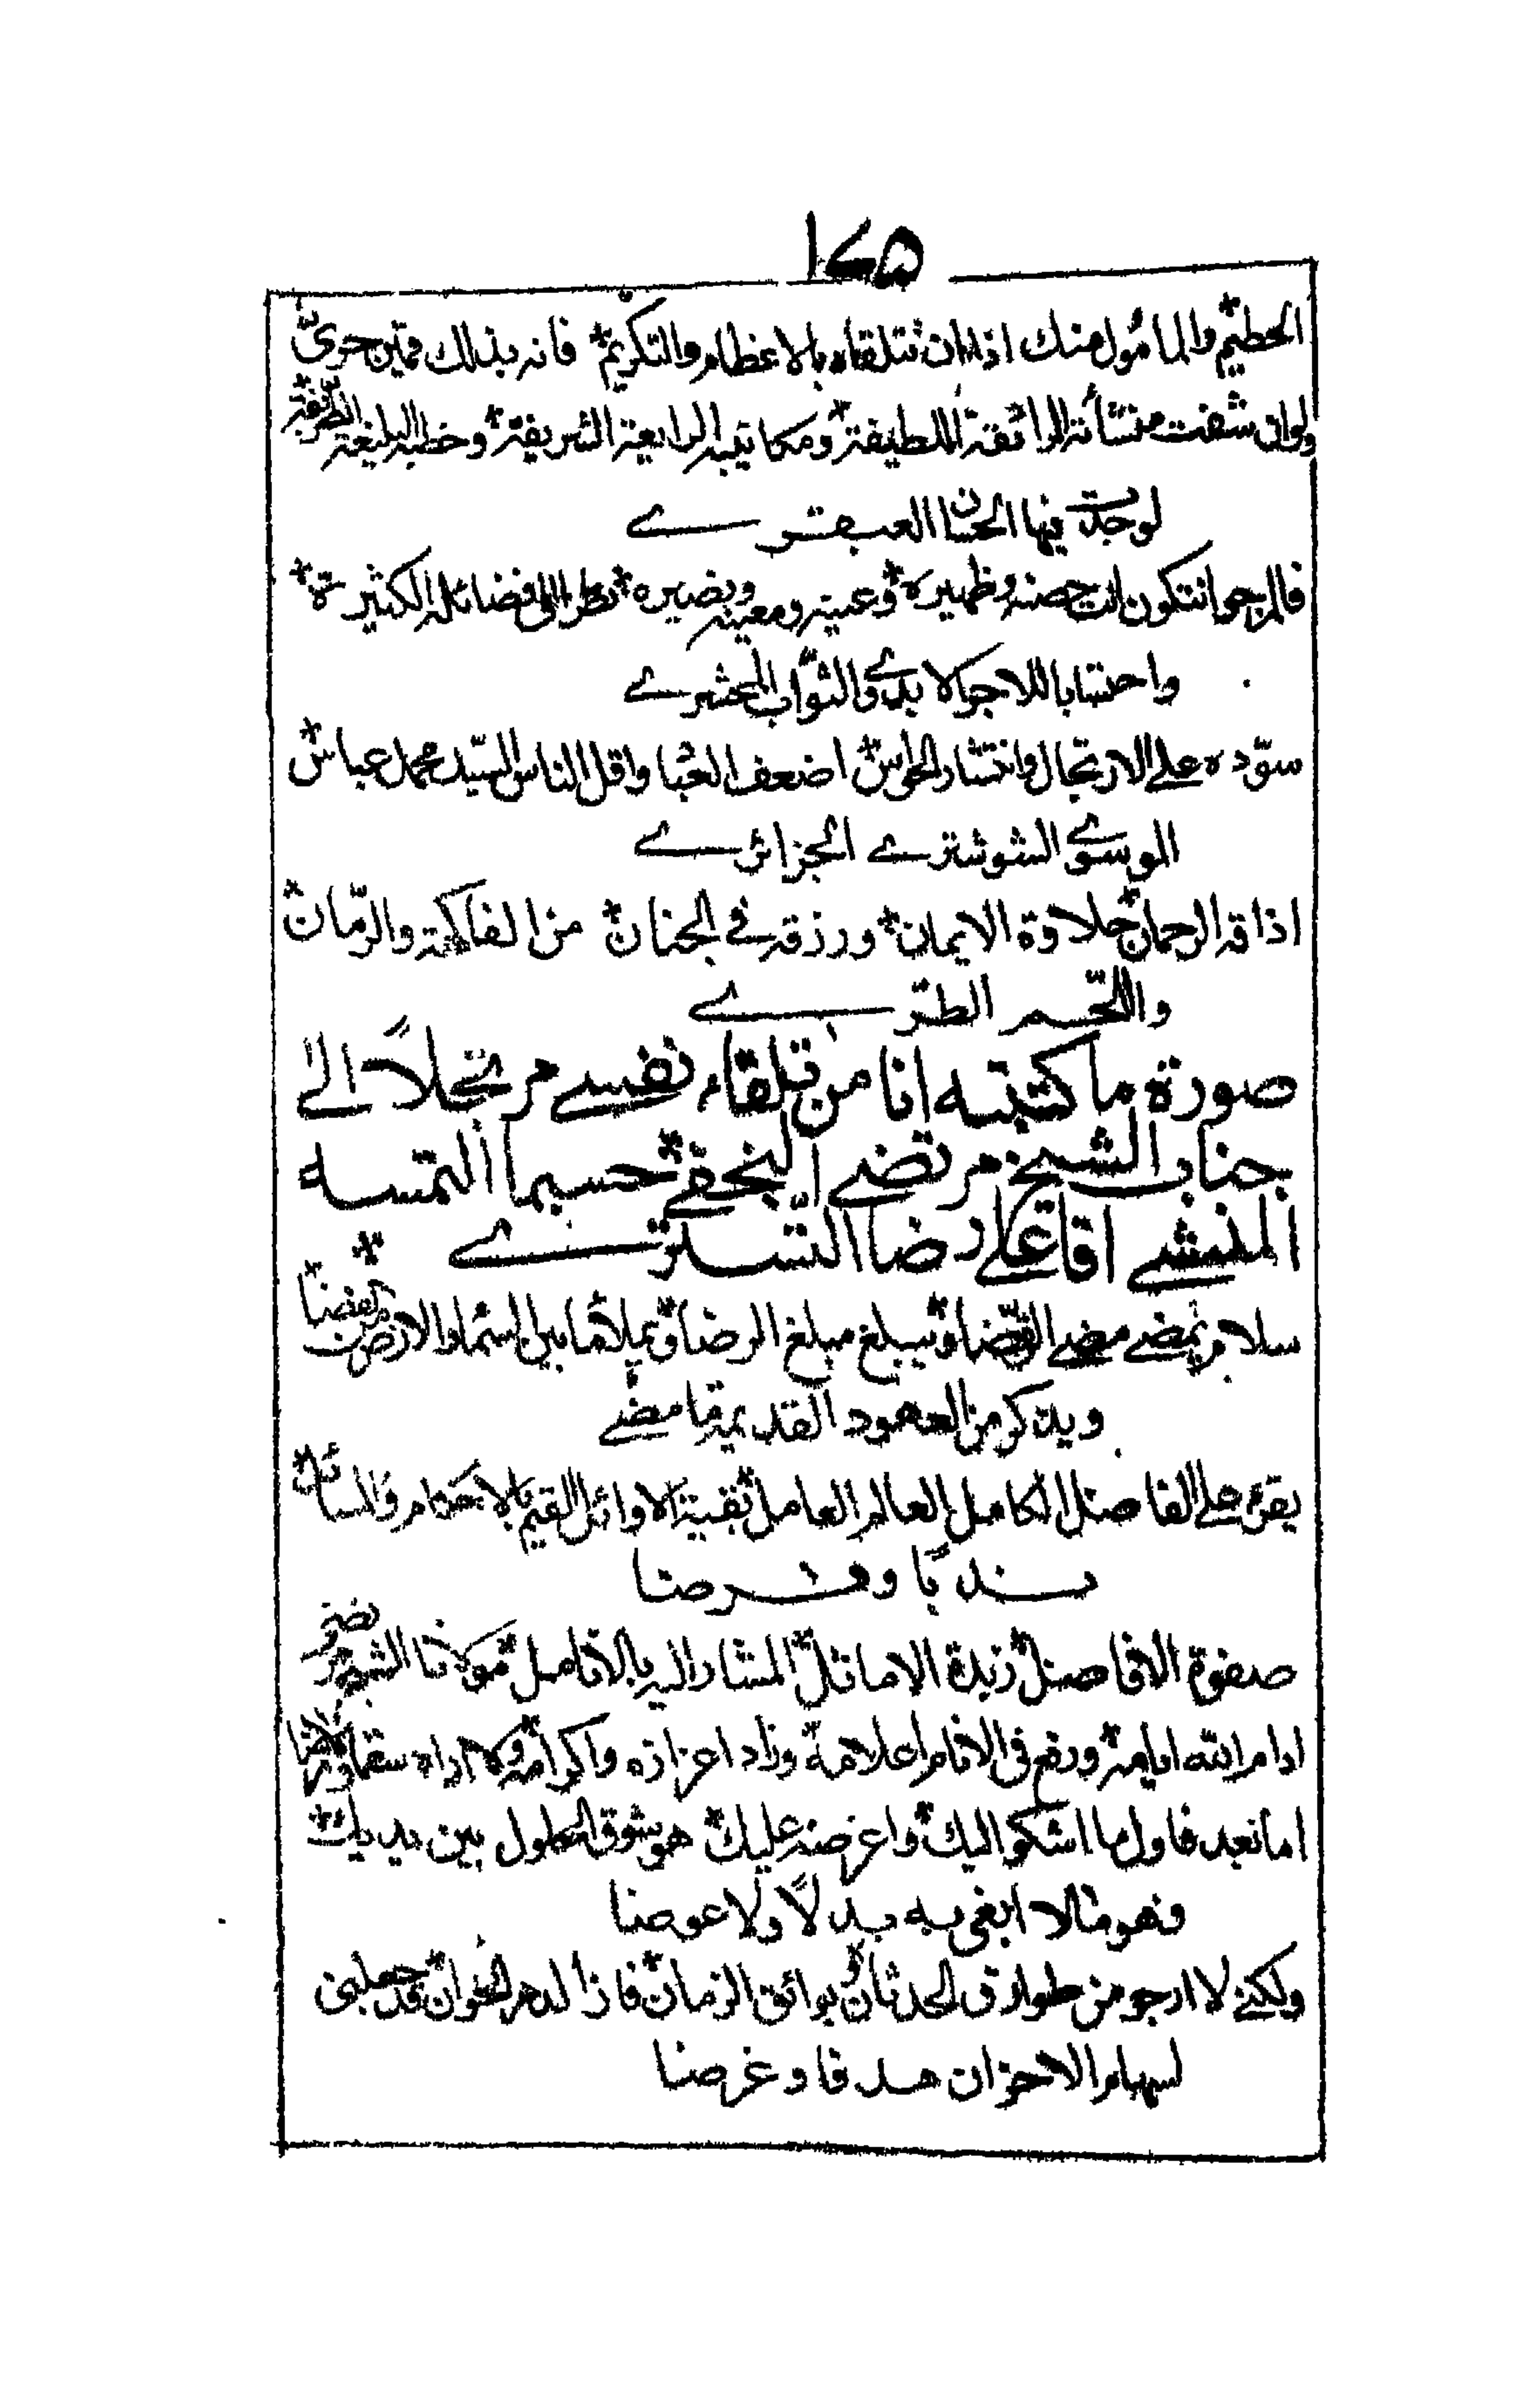 ١٢٥
الحطيم والمأمول منك اذا ان تتلقاه بالاعظام والتكريم فانه بذلك قمين حرىّ
ولوان شفت منشأته الرائقة اللطيفة ومكاتيبه الرايعة الشريفة وخطبه البليغة الطريفة
لوجدت فيها الحسان العبقرے
فالمرجو ان تكون انت حصنه وظهيره وعينه ومعينه ونصيره نظرا الى فضائله الكثيرة
واحتسابا للاجر الابدے والثواب المحشرے
سوّده على الارتجال وانتشار الحواس اضعف العباد اقل الناس السيّد محمد عباس
الموسوے الشوشترے الجزائرے
اذاقه الرحمان حلاوة الايمان ورزقه فے الجنان من الفاكهة والرّمان
واللّحم الطرّے
صورة ما كتبته انا من تلقاء نفسے مرتجلاً الى
جناب الشيخ مرتضے النجفے حسبما التمسه
المنشے اقا علے رضا التسترے
سلام يمضے مضے القضا ويبلغ مبلغ الرضا ويملأ ما بين السماء والارض من الفضا
ويذكر من العهود القديمة ما مضے
يقرء على الفاضل الكامل العالم العامل بقية الاوائل القيم بالاحكام والمسائل
ندبًا وفرضا
صفوة الافاضل زبدة الاماثل المشار اليه بالانامل مولانا الشيخ مرتضى
ادام الله ايامه ورفع فى الانام اعلامه وزاد اعزازه واكرامه ولا اراه سقما ولا مرضا
اما بعد فاول ما اشكو اليك واعرضه عليك هو شوق الحلول بين يديك
فهو ما لا ابغى به بدلاً ولا عوضا
ولكنے لا ارجو من طوارق الحدثان وبوائق الزمان فان الدهر الخوان قد جعلنى
لسهام الاحزان هدفا وغرضا